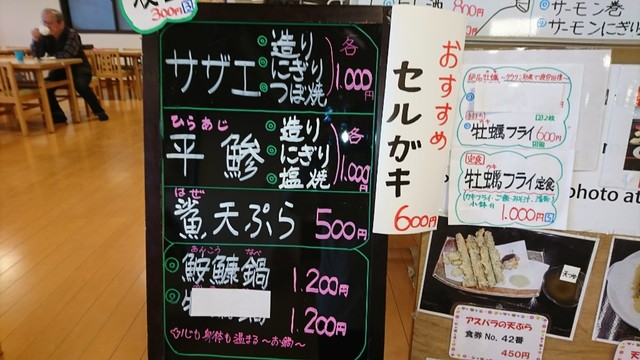 300円
サザエ
造り
にぎり
つぼ焼
各
1.000円
ひらあじ
平鰺
造り
にぎり
塩焼
各
1.000円
はぜ
鯊天ぷら 500円
あんこう なべ
鮟鱇鍋 1.200円
鍋 1.200円
心も身体も温まる〜お鍋〜
おすすめ
セルガキ
600円
800円
サーモン巻
サーモンにぎり
カキ
牡蠣フライ 600円
定食
カキ
牡蠣フライ定食
1.000円
photo at
天つゆ
アスパラの天ぷら
食券 No. 42番
450円